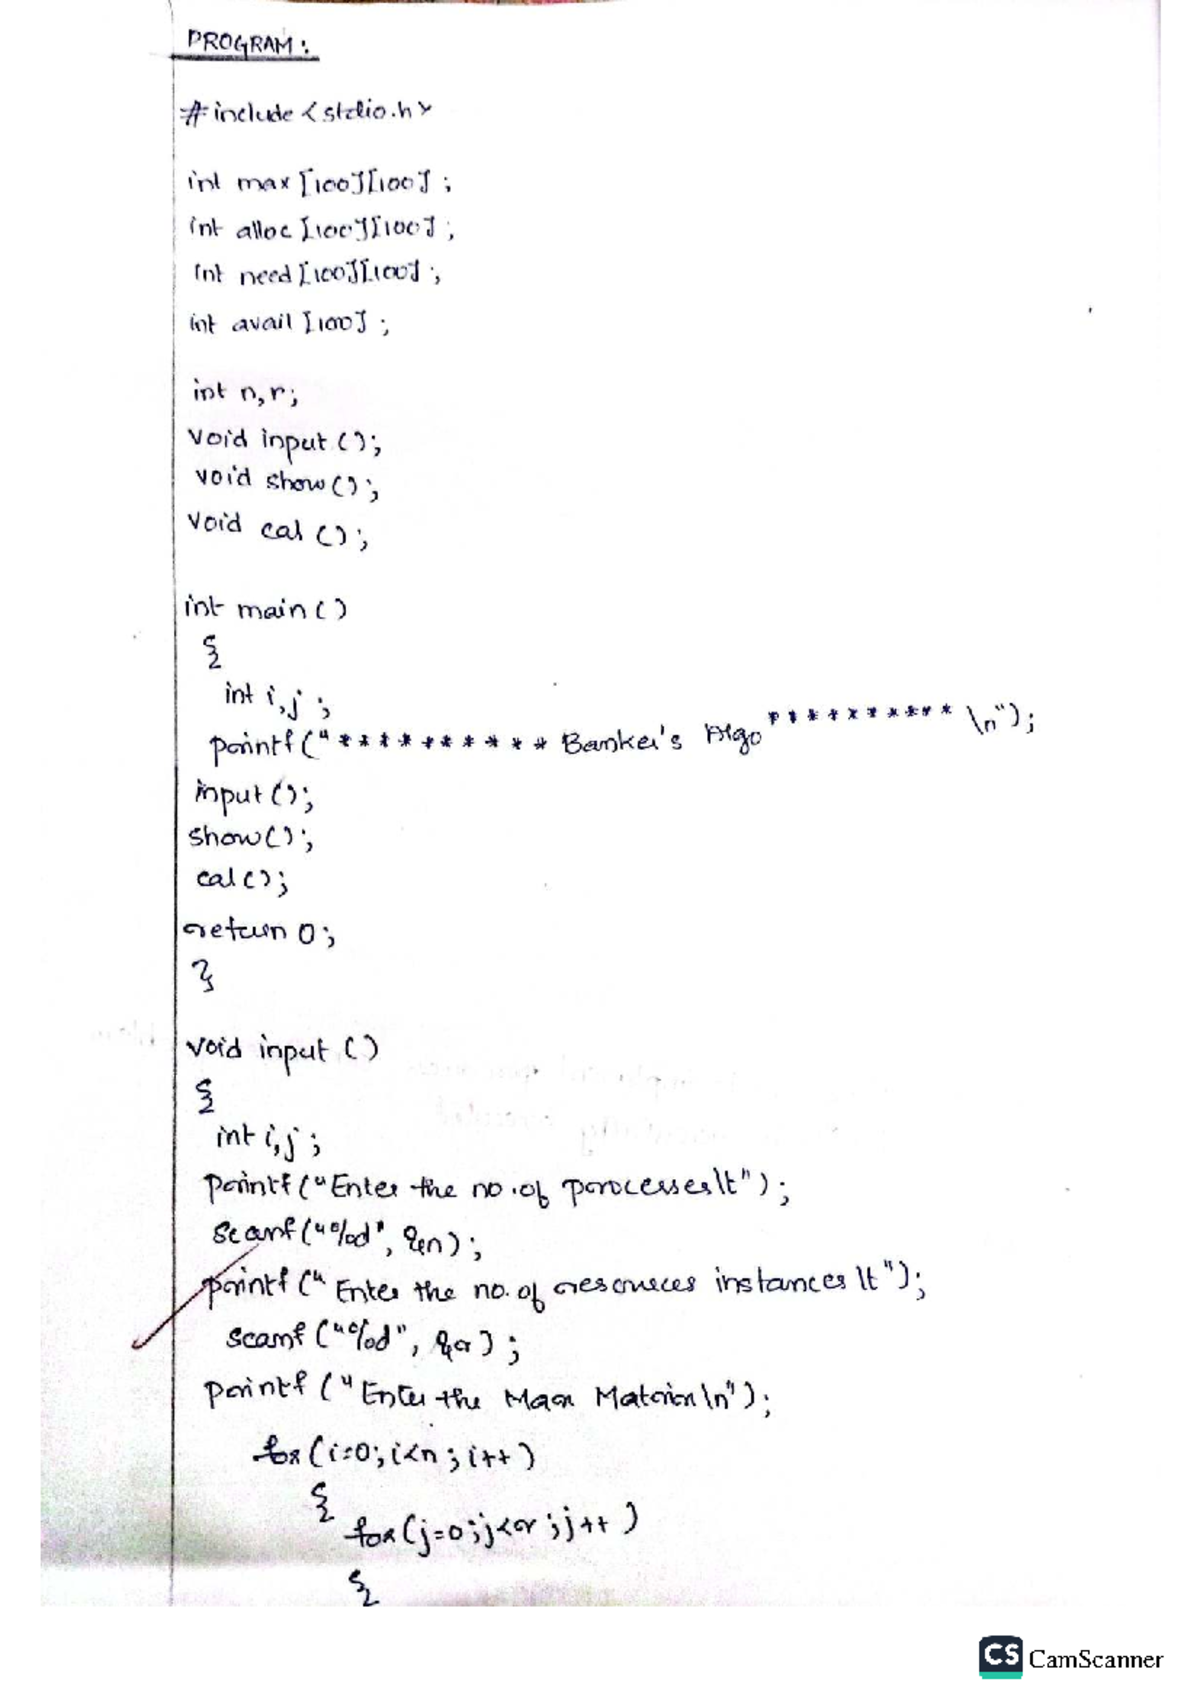 PROGRAM:
#include<stdio.h>
int max[100][100];
int alloc[100][100];
int need[100][100];
int avail[100];
int n,r;
void input();
void show();
void cal();
int main()
{
int i,j;
printf("********** Banker's Algo********** \n");
input();
show();
cal();
return 0;
}
void input()
{
int i,j;
printf("Enter the no.of processes\t");
scanf("%d", &n);
printf("Enter the no.of resources instances\t");
scanf("%d", &r);
printf("Enter the Max Matrix\n");
for(i=0;i<n;i++)
{
for(j=0;j<r;j++)
{
CS CamScanner